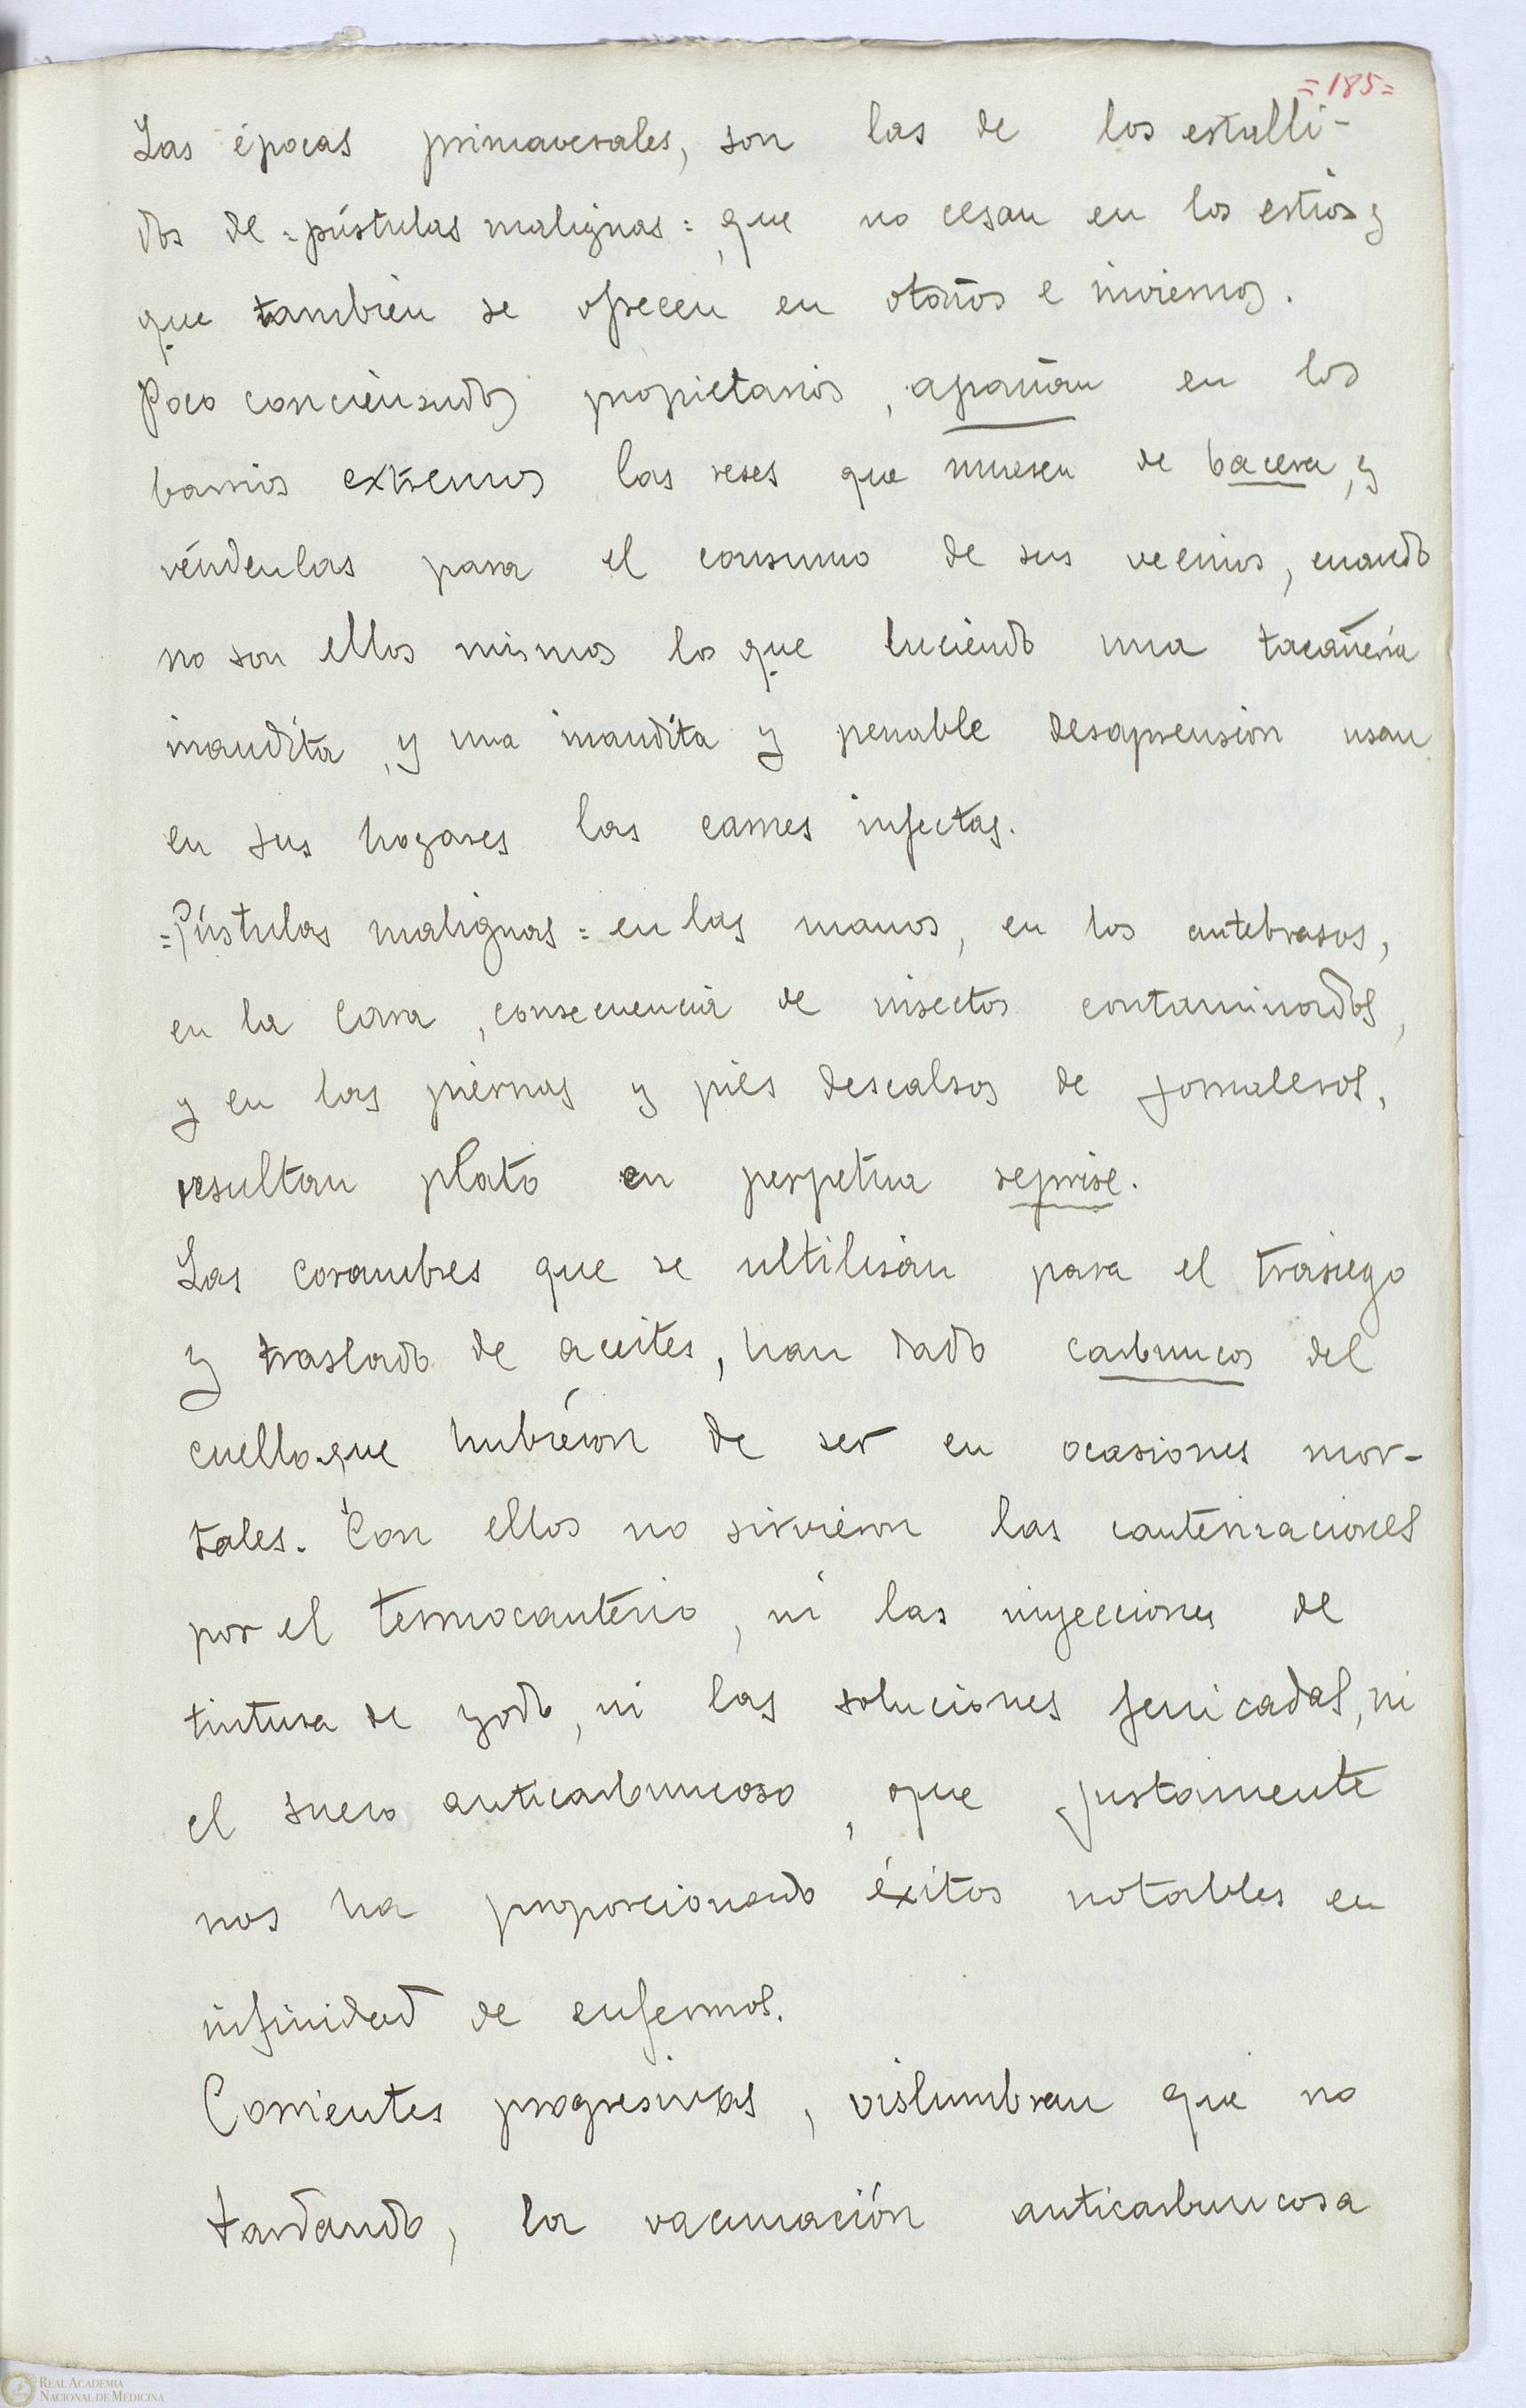 =185=
Las épocas primaverales, son las de los estalli-
dos de =pústulas malignas=, que no cesan en los estíos y
que también se ofrecen en otoños e inviernos.
Poco concienzudos propietarios, apañan en los
barrios extremos las reses que mueren de bacera, y
véndenlas para el consumo de sus vecinos, cuando
no son ellos mismos los que luciendo una tacañería
inaudita, y una inaudita y penable desaprensión usan
en sus hogares las carnes infectas.
=Pústulas malignas= en las manos, en los antebrasos,
en la cara, consecuencia de insectos contaminados,
y en las piernas y piés descalsos de jornaleros,
resultan plato en perpetua reprise.
Las corambres que se ultilisan para el trasiego
y traslado de aceites, han dado carbuncos del
cuello que hubieron de ser en ocasiones mor-
tales. Con ellos no sirvieron las cauterizaciones
por el termocauterio, ni las inyecciones de
tintura de yodo, ni las soluciones fenicadas, ni
el suero anticarbuncoso, que justamente
nos ha proporcionado éxitos notables en
infinidad de enfermos.
Corrientes progresivas, vislumbran que no
tardando, la vacunación anticarbuncosa
REAL ACADEMIA
NACIONAL DE MEDICINA